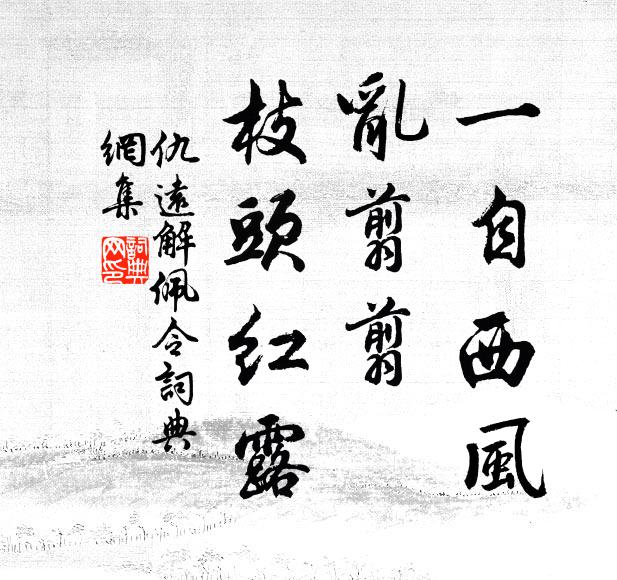 一自西風
亂翦翦
枝頭紅露
仇遠解佩令詞典
網集
詞典
网印